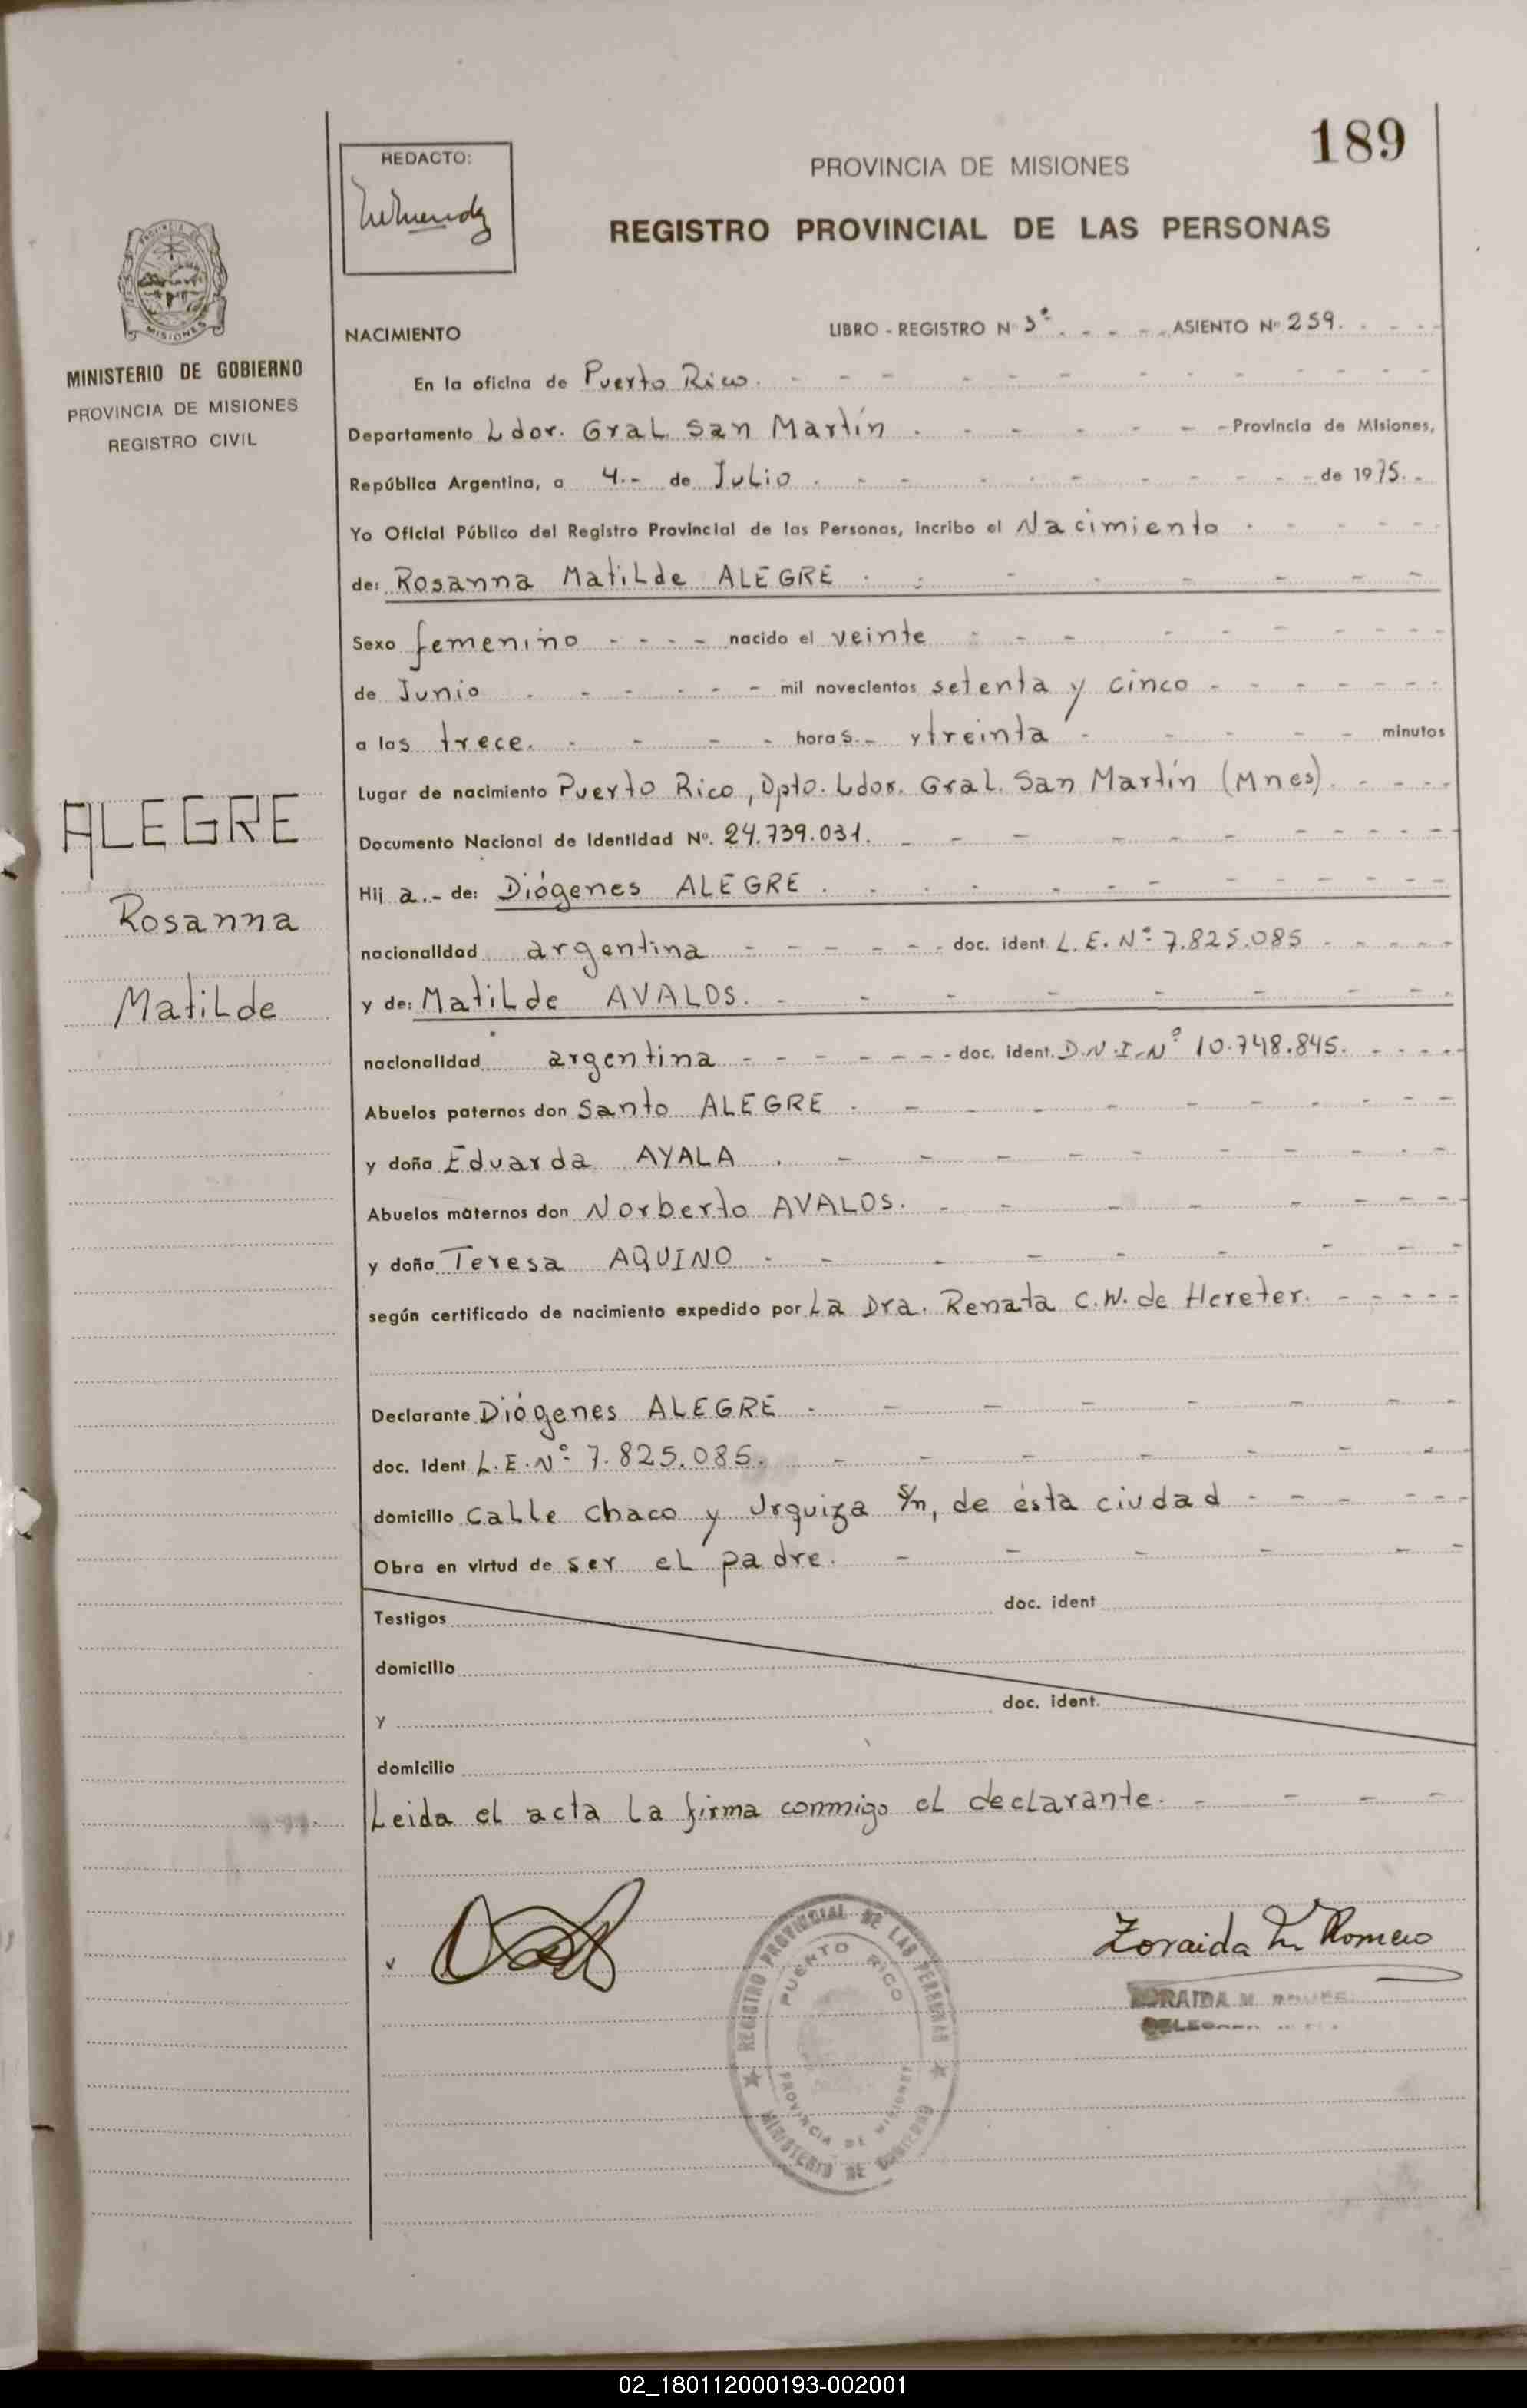 189
REDACTO:
PROVINCIA DE MISIONES
REGISTRO PROVINCIAL DE LAS PERSONAS
MISIONES
MINISTERIO DE GOBIERNO
PROVINCIA DE MISIONES
REGISTRO CIVIL
ALEGRE
Rosanna
Matilde
NACIMIENTO LIBRO - REGISTRO Nº 3º ASIENTO Nº 259.
En la oficina de Puerto Rico.
Departamento Ldor. Gral. San Martín. Provincia de Misiones,
República Argentina, a 4.- de Julio. de 1975.
Yo Oficial Público del Registro Provincial de las Personas, incribo el Nacimiento
de: Rosanna Matilde ALEGRE
Sexo femenino nacido el veinte
de Junio mil novecientos setenta y cinco
a las trece. horas.- y treinta minutos
Lugar de nacimiento Puerto Rico, Dpto. Ldor. Gral. San Martín (Mnes).
Documento Nacional de Identidad Nº. 24.739.031.
Hij a.- de: Diógenes ALEGRE.
nacionalidad argentina doc. ident. L.E. Nº 7.825.085
y de: Matilde AVALOS.
nacionalidad argentina doc. ident. D.N.I.Nº 10.748.845.
Abuelos paternos don Santo ALEGRE
y doña Eduarda AYALA.
Abuelos maternos don Norberto AVALOS.
y doña Teresa AQUINO
según certificado de nacimiento expedido por La Dra. Renata C.W. de Hereter.
Declarante Diógenes ALEGRE
doc. ident L.E.Nº 7.825.085.
domicilio Calle Chaco y Urquiza s/n, de ésta ciudad
Obra en virtud de ser el padre.
Testigos doc. ident
domicilio
y doc. ident.
domicilio
Leida el acta la firma conmigo el declarante.
Zoraida M. Romero
REGISTRO PROVINCIAL DE LAS PERSONAS
PUERTO RICO
PROVINCIA DE MISIONES
MINISTERIO DE GOBIERNO
02_180112000193-002001